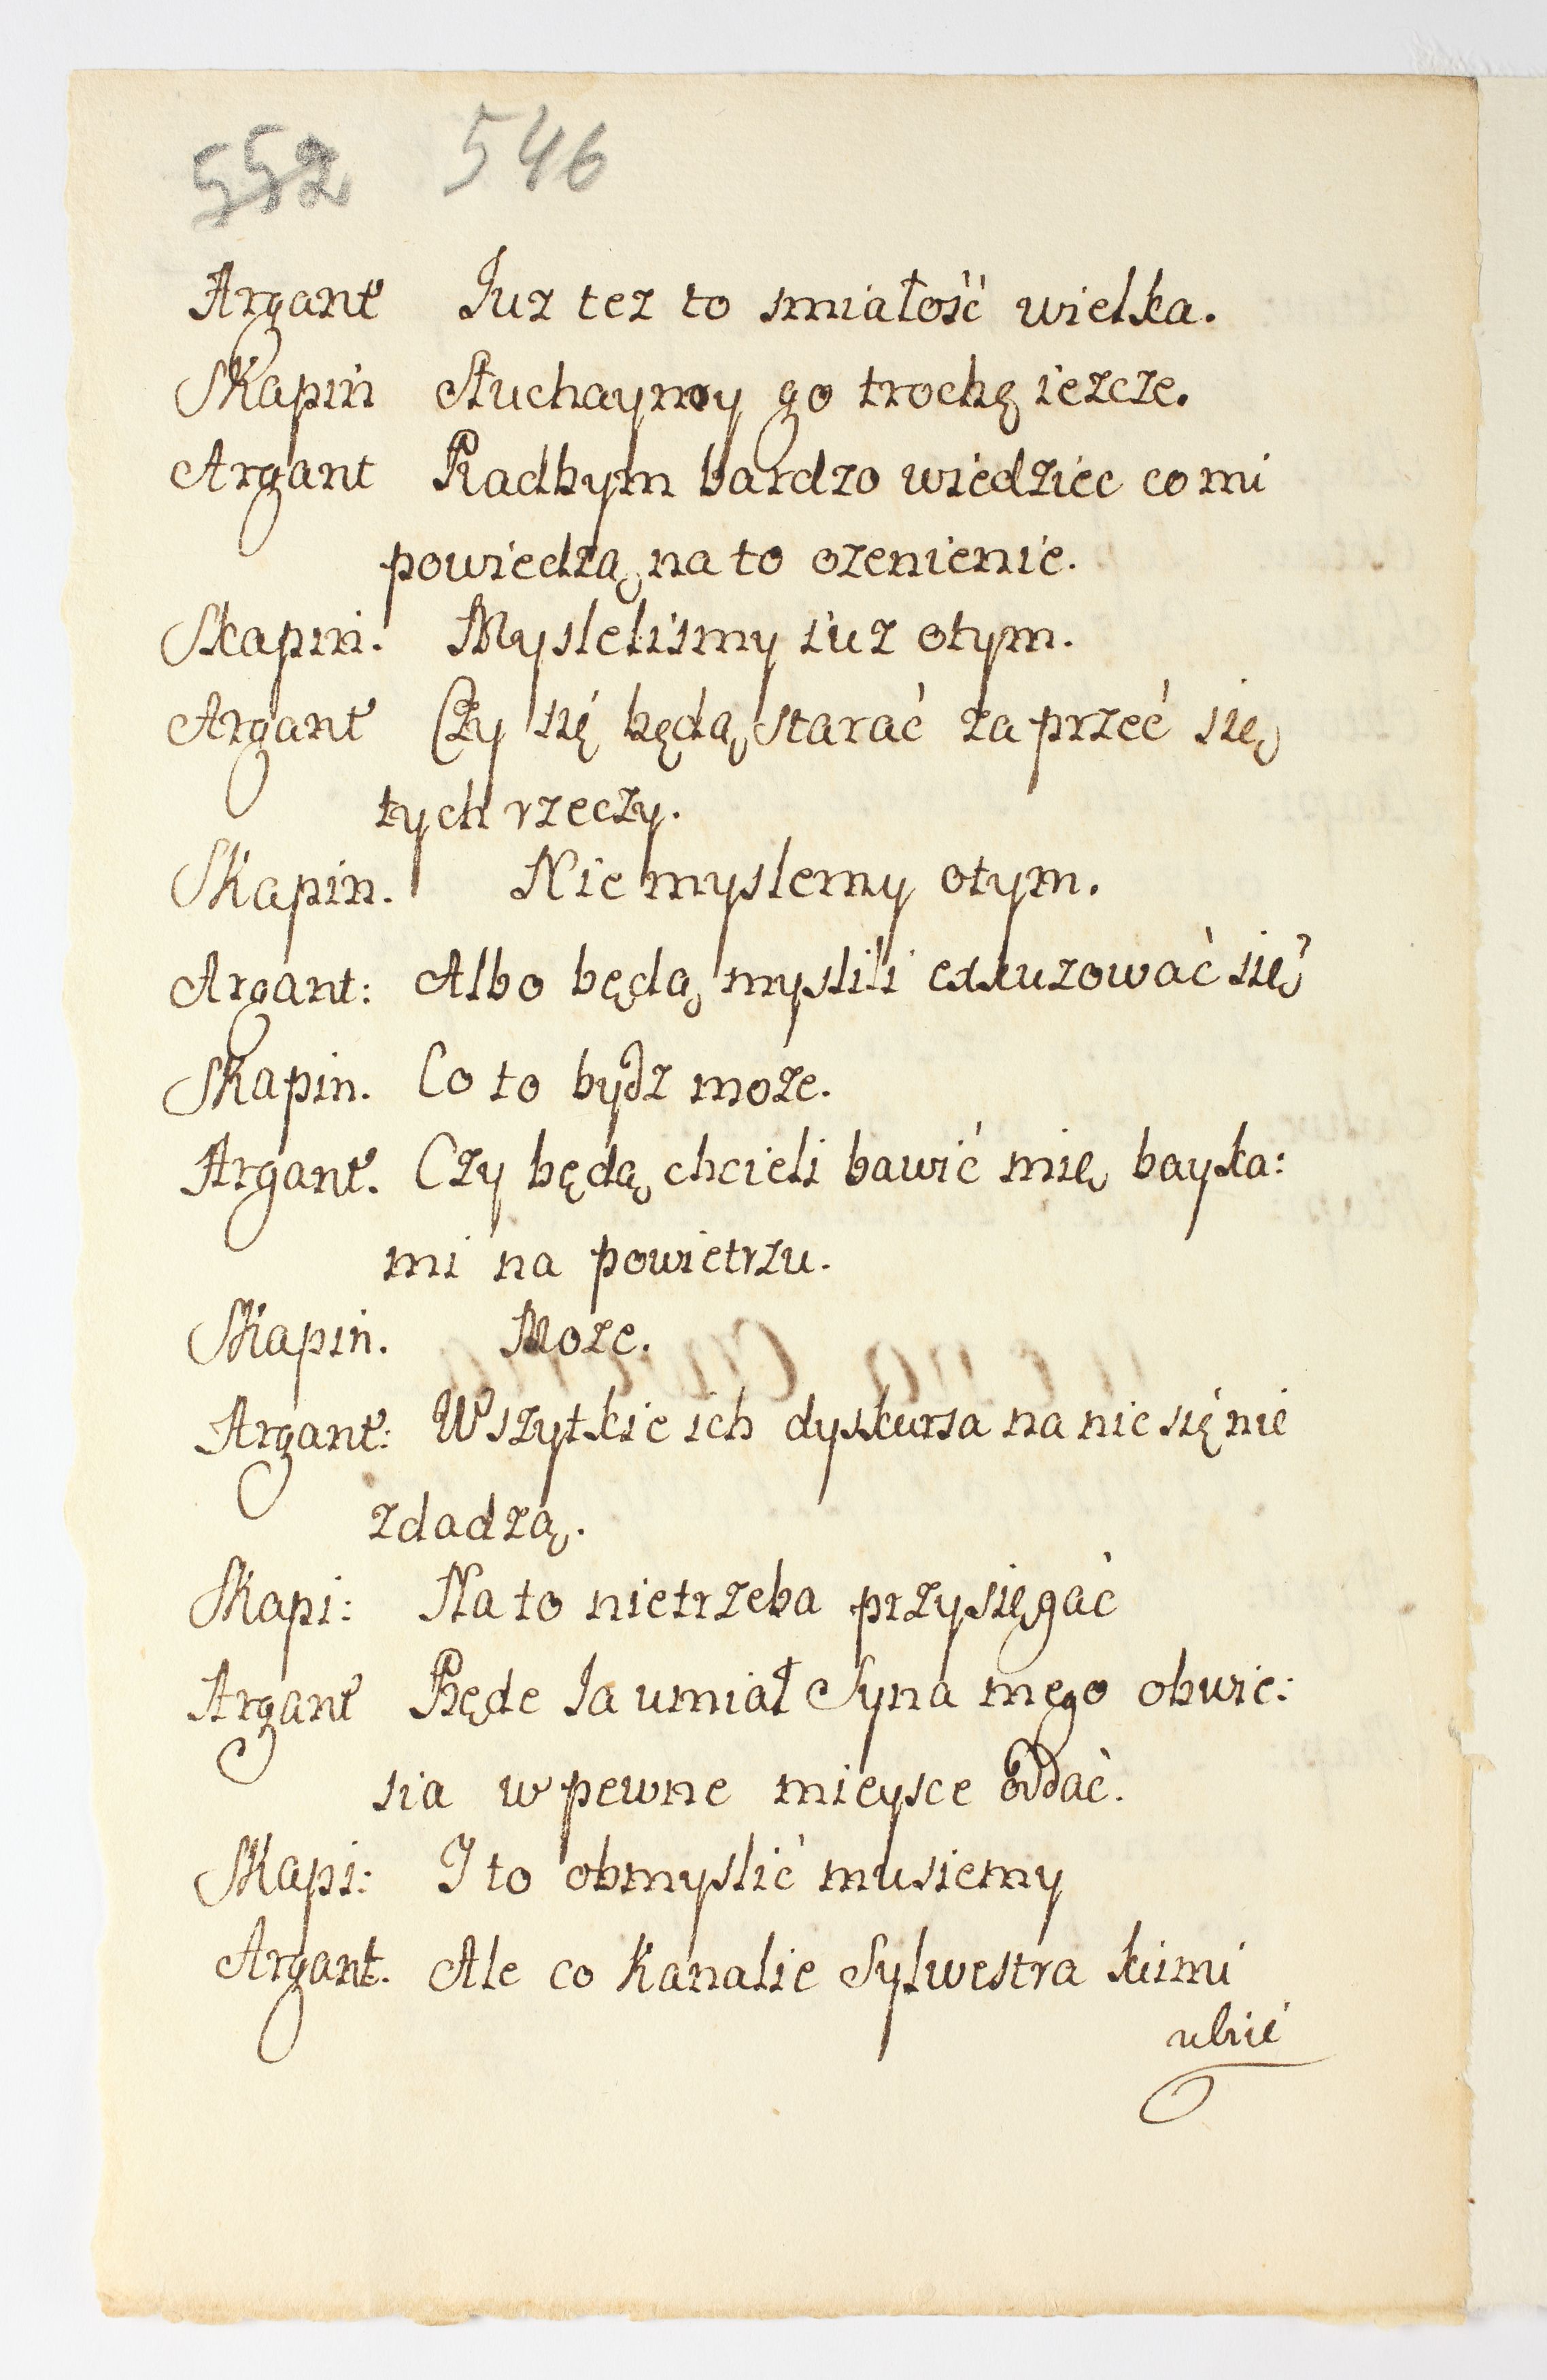 552 546
Argant Iuz tez to smiałość wielka.
Skapin Słuchaymy go trochę iezcze.
Argant Radbym bardzo wiedziec co mi
powiedzą na to ozenienie.
Skapin. Mysleliśmy iuz otym.
Argant Czy się będą starać zaprzeć się
tych rzeczy.
Skapin. Nie myslemy otym.
Argant: Albo będą myslili exkuzować się
Skapin. Co to bydz moze.
Argant. Czy będą chcieli bawić mię bayka:
mi na powietrzu.
Skapin. Moze.
Argant: Wszytkie ich dyskursa na nic się nie
zdadzą.
Skapi: Na to nietrzeba przysięgać
Argant Będe Ia umiał Syna mego obwie:
sia w pewne mieysce oddać.
Skapi: I to obmyslić musiemy
Argant. Ale co Kanalie Sylwestra kiimi
ubić